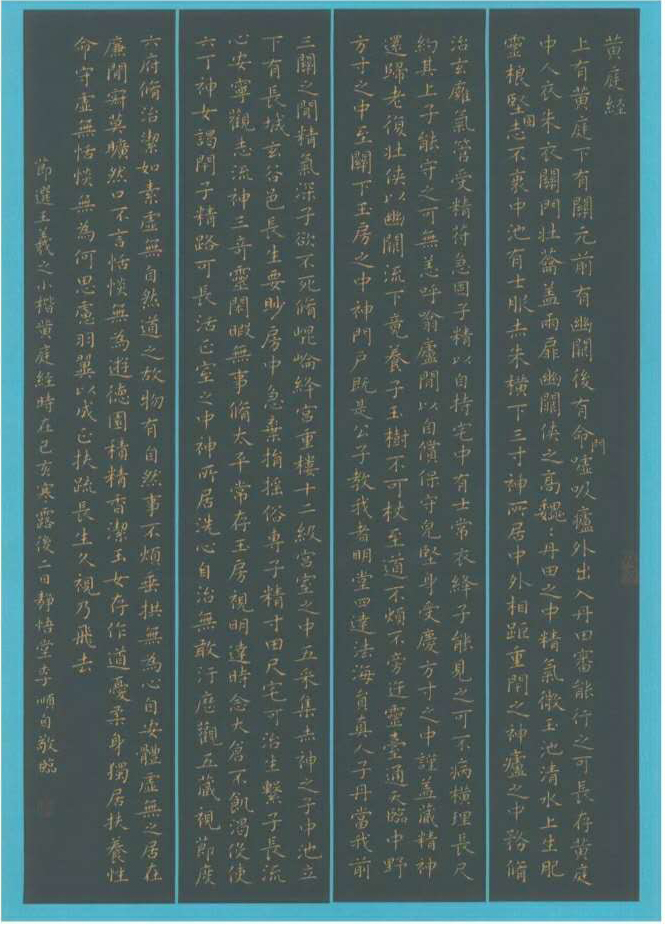 黄庭經
上有黄庭下有關元前有幽關後有命門噓吸廬外出入丹田審能行之可長存黄庭
中人衣朱衣關門壮蘥盖兩扉幽關俠之髙魏:丹田之中精氣微玉池清水上生肥
靈根堅固志不衰中池有士服赤朱横下三寸神所居中外相距重閉之神廬之中務脩
治玄廱氣管受精符急固子精以自持宅中有士常衣絳子能見之可不病横理長尺
約其上子能守之可無恙呼翕廬間以自償保守皃堅身受慶方寸之中謹盖藏精神
還歸老復壮俠以幽關流下竟養子玉樹不可杖至道不煩不旁迕靈臺通天臨中野
方寸之中至關下玉房之中神門户既是公子教我者明堂四達法海負真人子丹當我前
三關之間精氣深子欲不死脩崐崘絳宮重樓十二級宮室之中五采集赤神之子中池立
下有長城玄谷邑長生要眇房中急棄捐搖俗專子精寸田尺宅可治生繫子長流
心安寧觀志流神三奇靈閑暇無事脩太平常存玉房視明達時念大倉不飢渴役使
六丁神女謁閉子精路可長活正室之中神所居洗心自治無敢汙歴觀五藏視節度
六府脩治潔如素虚無自然道之故物有自然事不煩垂拱無為心自安體虚無之居在
廉間寂莫曠然口不言恬惔無為遊德園積精香潔玉女存作道憂柔身獨居扶養性
命守虚無恬惔無為何思慮羽翼以成正扶疏長生久視乃飛去
節選王羲之小楷黄庭經時在己亥寒露後二日静悟堂李順自敬臨